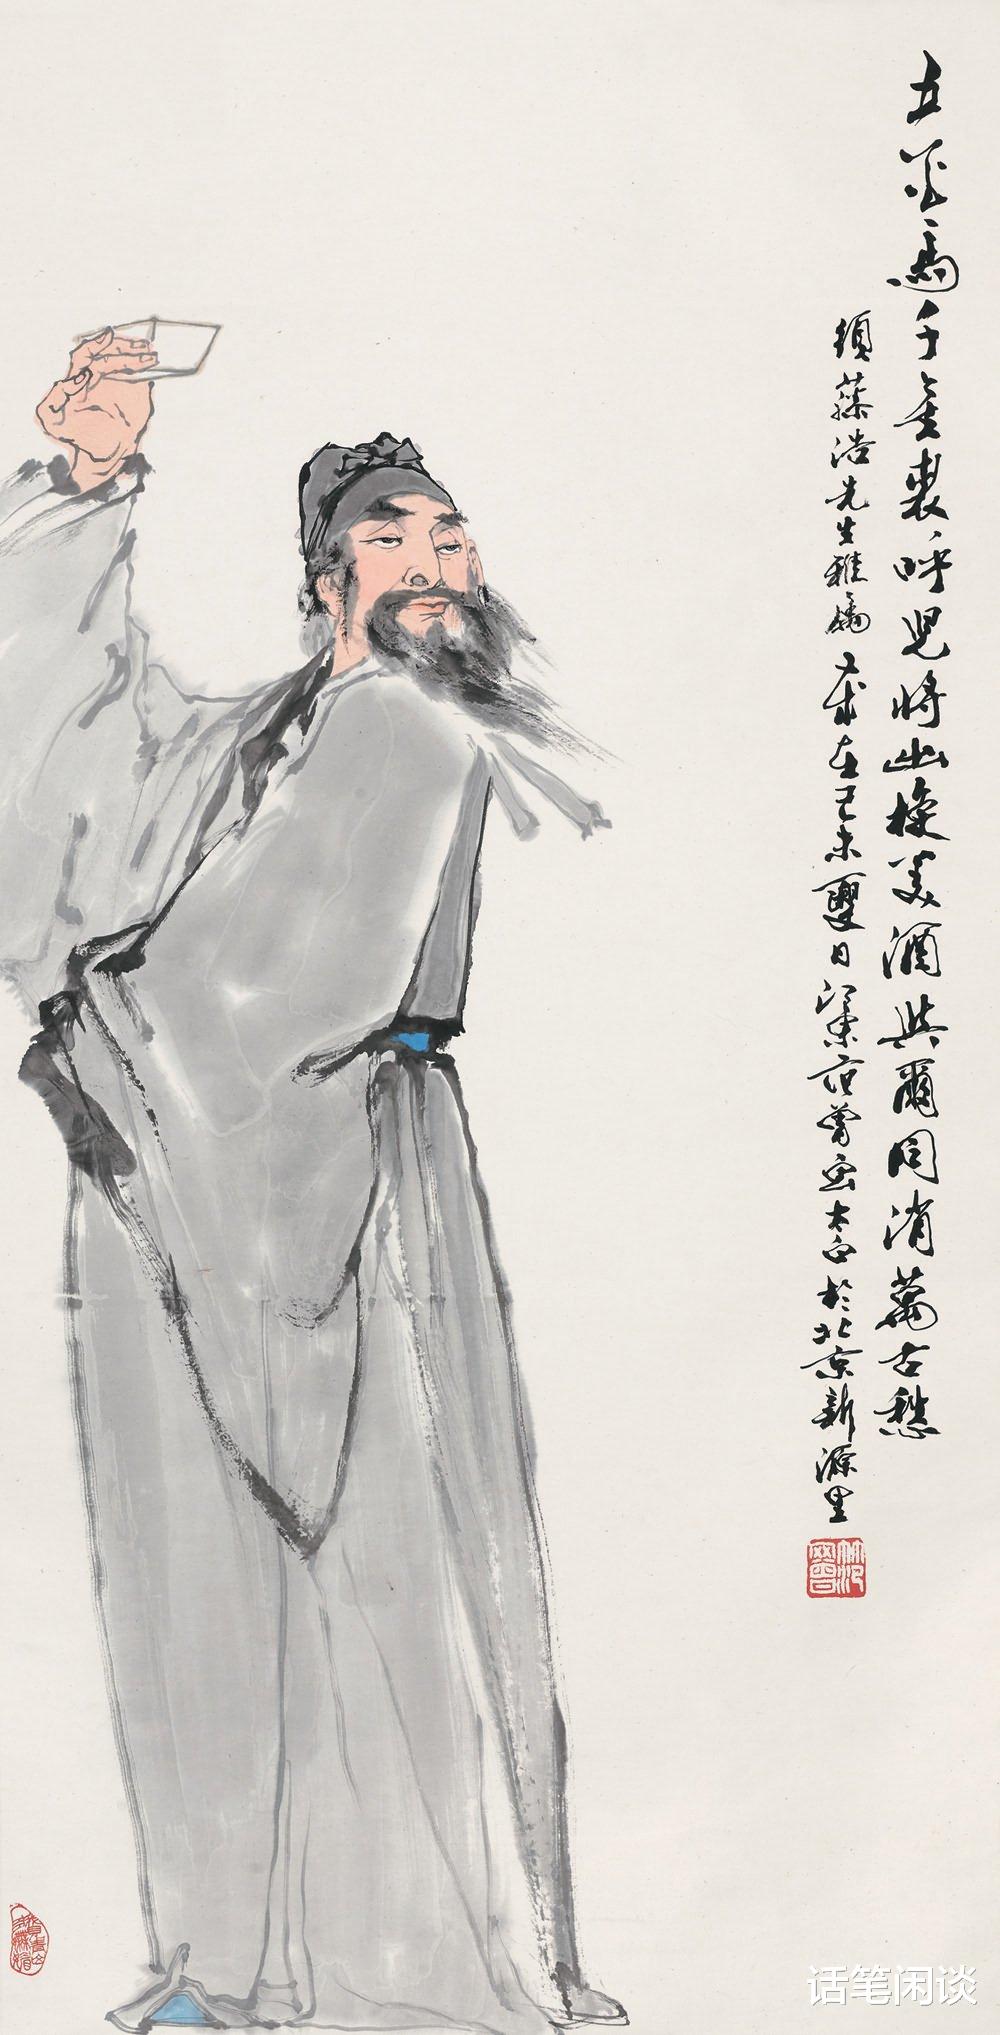 五花馬千金裘呼兒將出換美酒與爾同消萬古愁
須藤浩先生雅屬 歲在己未夏日江東范曾畫太白於北京新源里
话笔闲谈